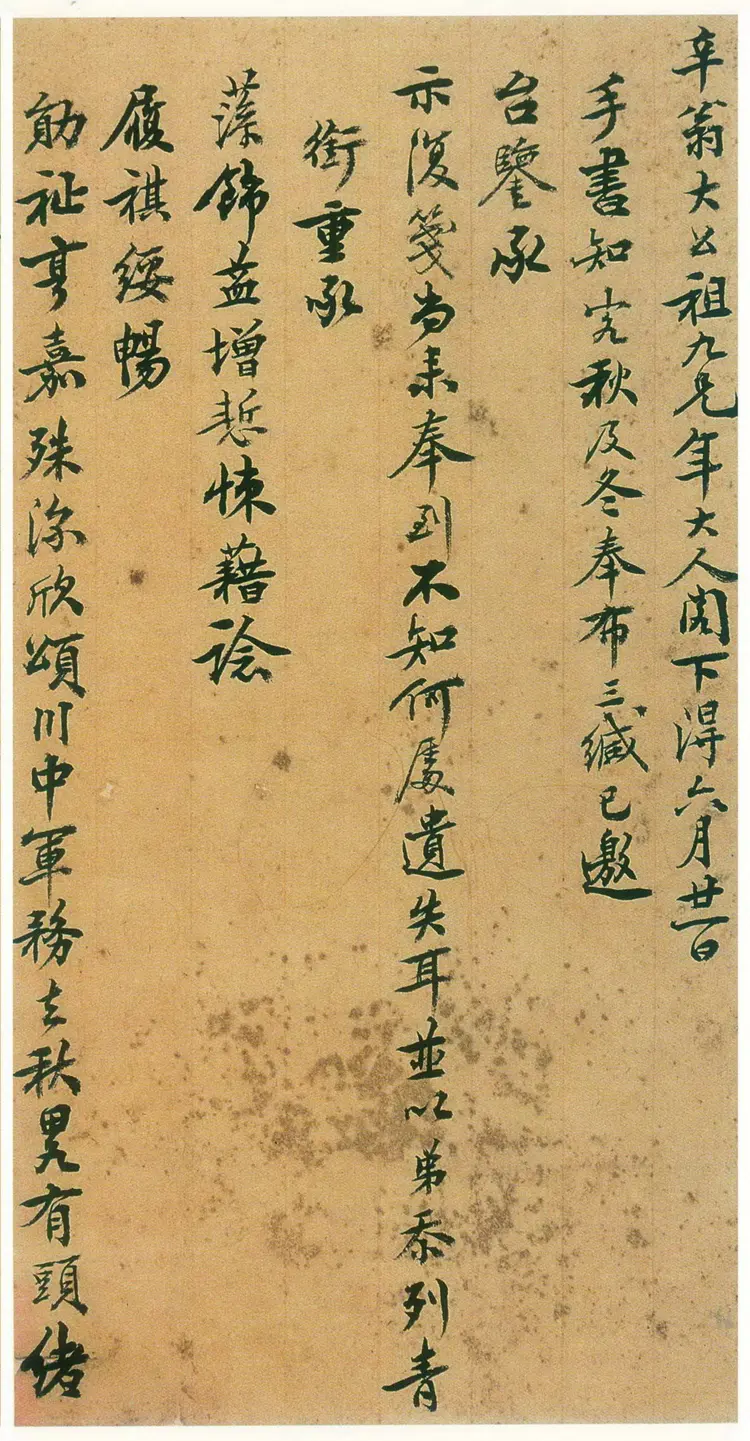 辛翁大公祖九兄年大人阁下得六月廿一日
手書知客秋及冬奉布三緘已邀
台鑒承
示復箋尚未奉到不知何處遺失耳並以弟忝列青
銜重承
藻飾益增慙悚藉諗
履祺綏暢
勛祉亨嘉殊深欣頌川中軍務去秋畧有頭緒